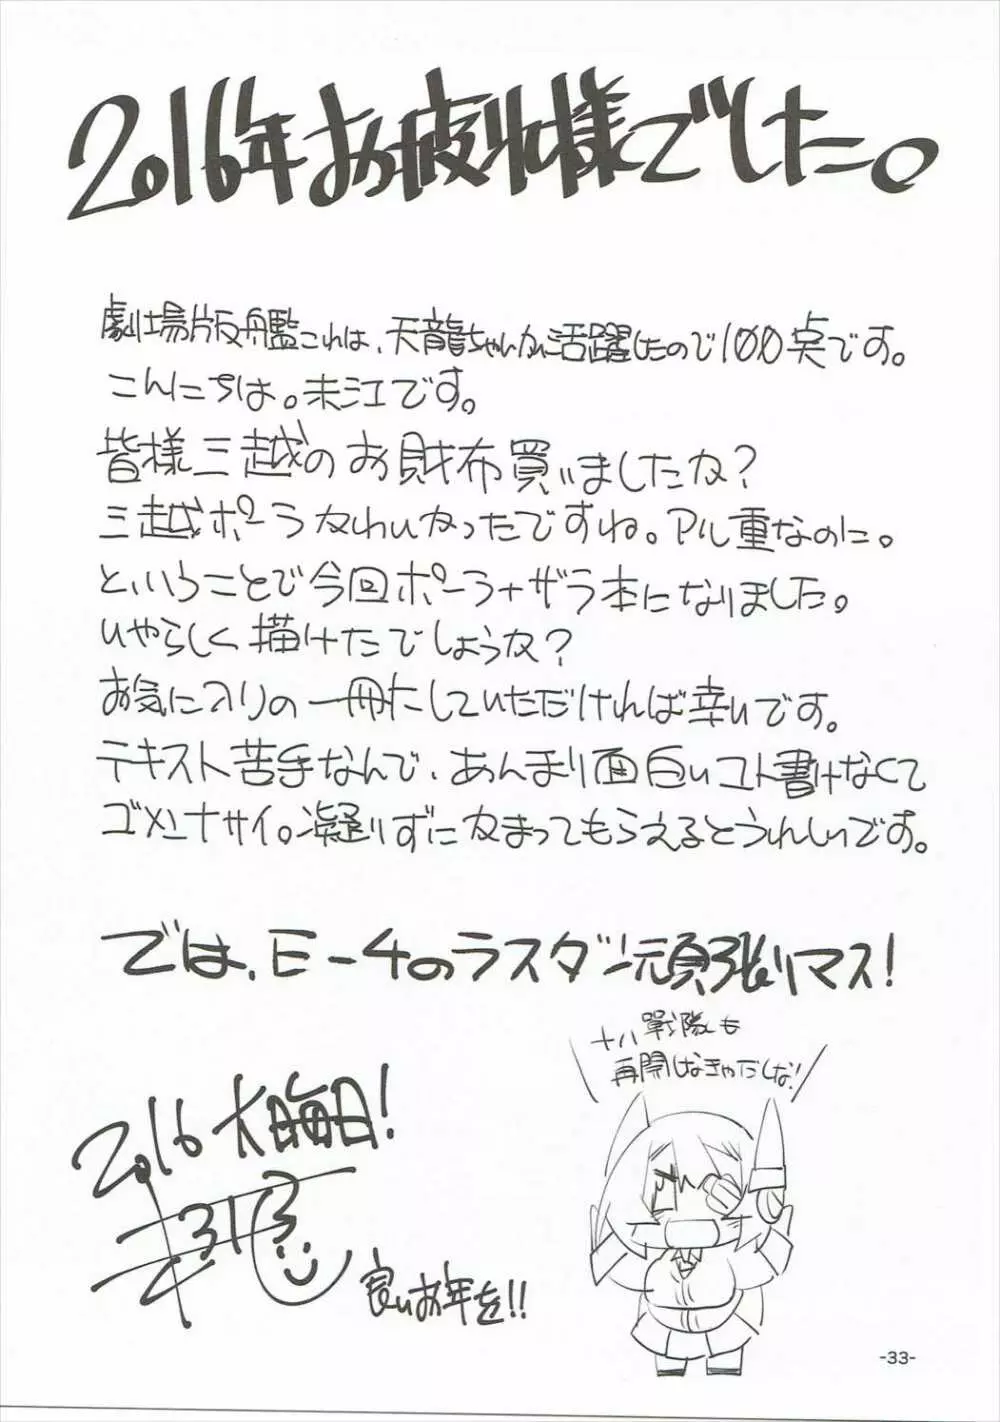 2016年お疲れ様でした。
劇場版艦これは、天龍ちゃんが活躍したので100点です。
こんにちは。未江です。
皆様三越のお財布買いましたか?
三越ポーラかわいかったですね。アル重なのに。
ということで今回ポーラ+ザラ本になりました。
いやらしく描けたでしょうか?
お気に入りの一冊にしていただければ幸いです。
テキスト苦手なんで、あんまり面白いコト書けなくて
ゴメンナサイ。凝りずにかまってもらえるとうれしいです。
では、E-4のラスダン頑張りマス!
十八戰隊も
再開しなきゃだしな!
2016大晦日!
良いお年を!!
-33-